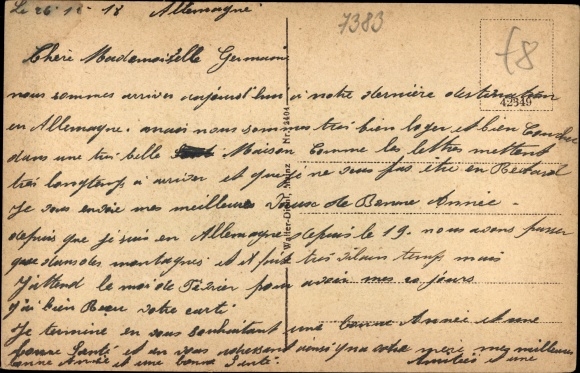 Le 26-12-18 Allemagne
7383
f8
42349
Chère Mademoiselle Germaine
nous sommes arriver aujourd'hui a notre dernière destination
en Allemagne. mais nous sommes très bien loger et bien Coucher
dans une très belle Maison Comme les lettres mettent
très longtemps a arriver et que je ne veus pas être en Retard
Je vous envoie mes meilleurs Vœux de Bonne Année -
depuis que je suis en Allemagne depuis le 19. nous avons passer
que dans des montagnes et il fait très vilain temps mais
J'attend le moi de Février pour avoir mes 20 jours
j'ai bien Reçu votre carte
Je termine en vous souhaitant une bonne Année et une
bonne Santé et en vous adressant ainsi qu'a votre mère mes meilleures
Amitiés et une
bonne Année et une bonne Santé.
Walter-Druck Mainz Nr. 2404